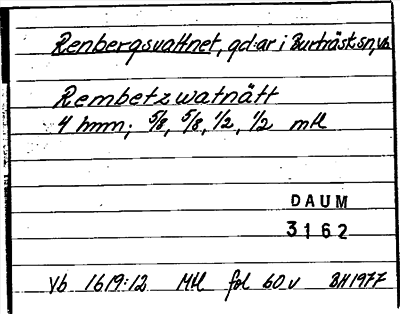 Renbergsvattnet, gd·ar i Burträsk sn, Vb
Rembetz watnätt
4 hmn; 5/8, 5/8, 1/2, 1/2 mtl
DAUM
3162
Vb 1619:12 Mtl fol 60 v BH 1977